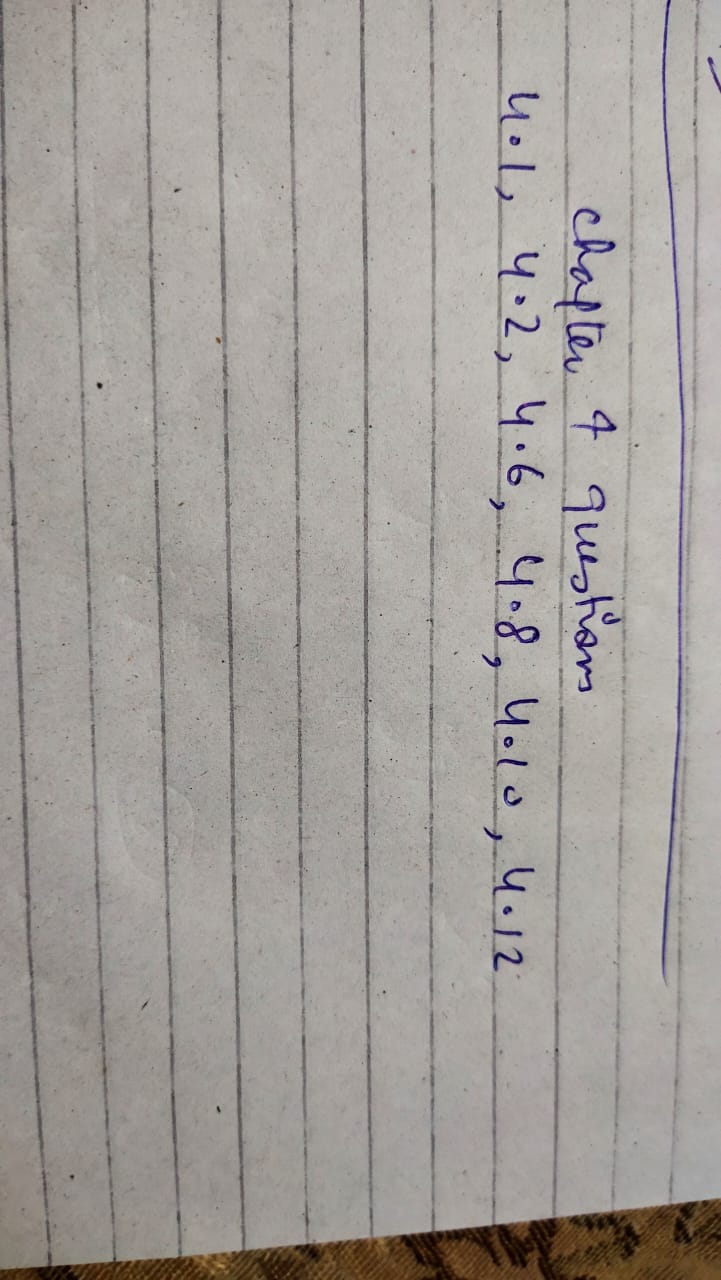 chapter 4 questions
4.1, 4.2, 4.6, 4.8, 4.10, 4.12